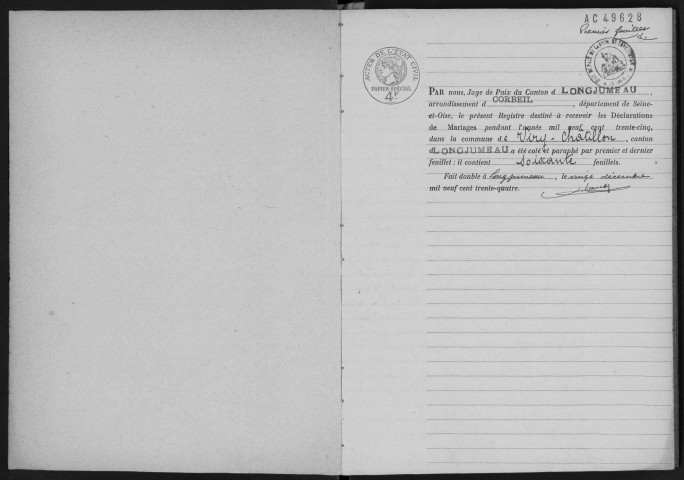 AC49628
Premier feuillet
ACTES DE L'ÉTAT CIVIL
PAPIER SPÉCIAL
4F
PAR nous, Juge de Paix du Canton d LONGJUMEAU,
arrondissement d CORBEIL, département de Seine-
et-Oise, le présent Registre destiné à recevoir les Déclarations
de Mariages pendant l'année mil neuf cent trente-cinq,
dans la commune de Viry-Châtillon, canton
d LONGJUMEAU a été coté et paraphé par premier et dernier
feuillet : il contient Soixante feuillets.
Fait double à Longjumeau, le vingt décembre
mil neuf cent trente-quatre.